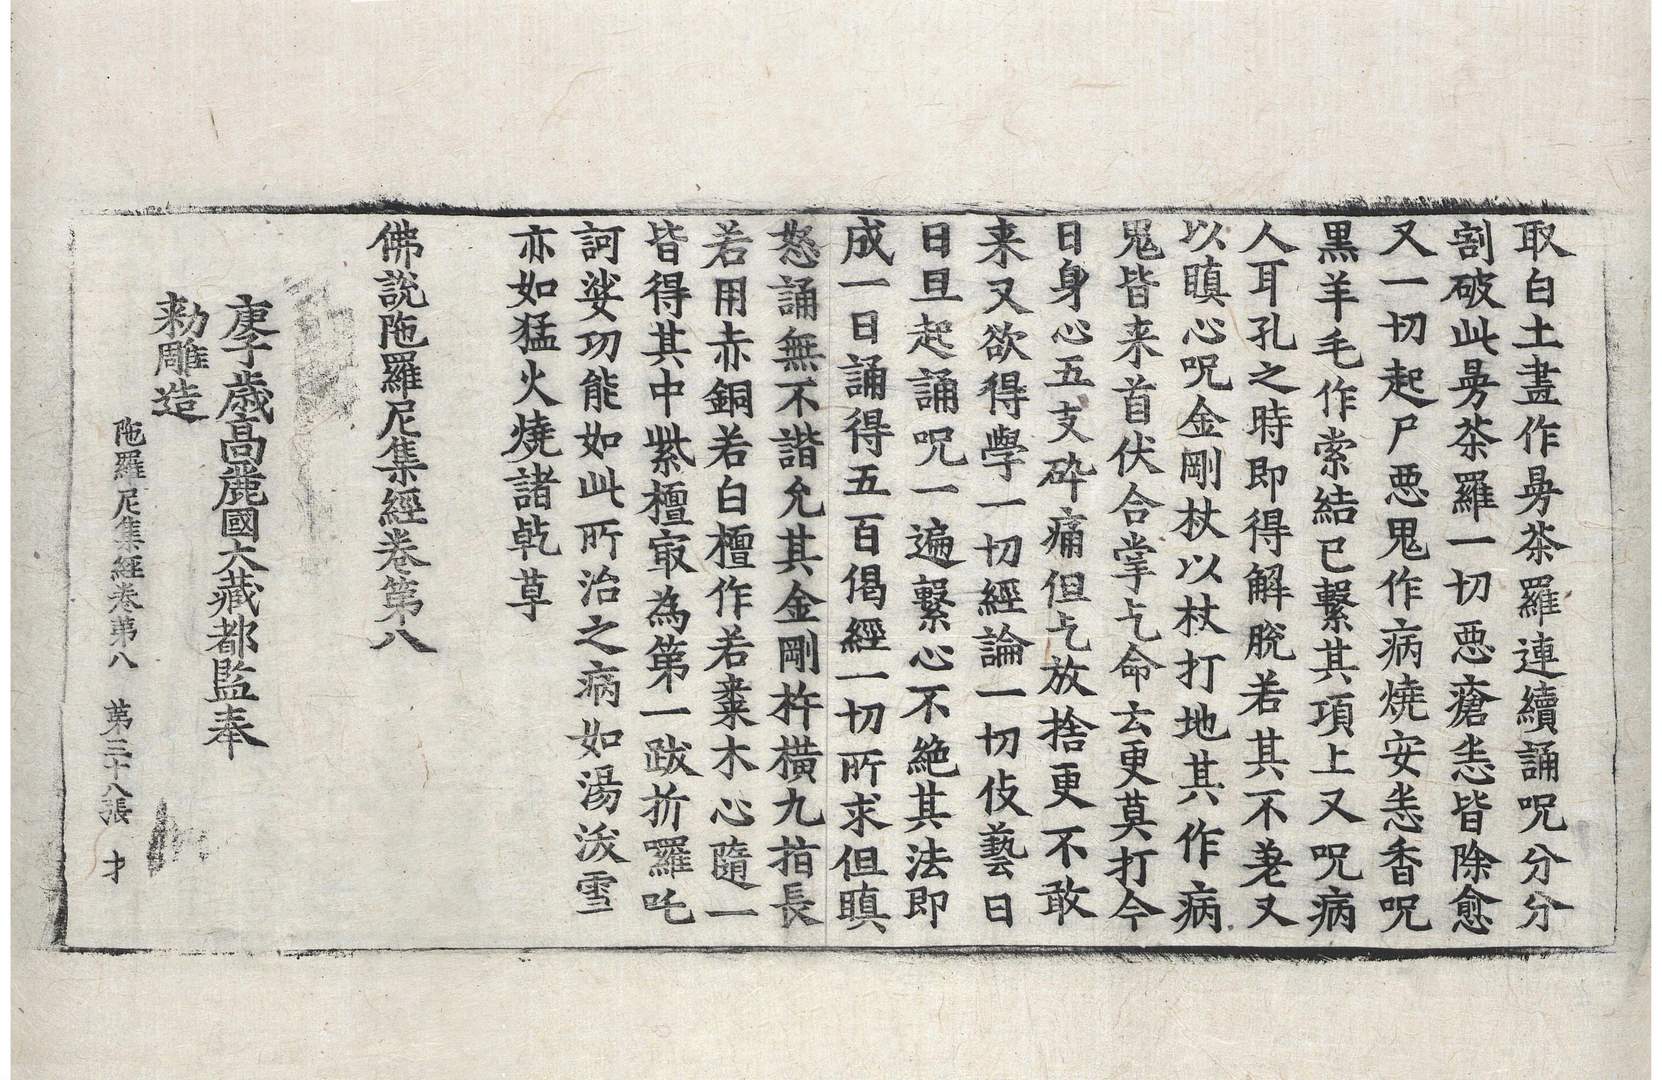 取白土畫作㬅茶羅連續誦呪分分
割破此㬅茶羅一切惡瘡恙皆除愈
又一切起尸惡鬼作病燒安恙香呪
黒羊毛作索結已繫其項上又呪病
人耳孔之時即得解脫若其不差又
以瞋心呪金剛杖以杖打地其作病
鬼皆来首伏合掌乞命云更莫打今
日身心五支碎痛但乞放捨更不敢
来又欲得學一切經論一切伎藝日
日旦起誦呪一遍繫心不絶其法即
成一日誦得五百偈經一切所求但瞋
怒誦無不諧允其金剛杵橫九指長
若用赤銅若白檀作若棗木心隨一
皆得其中紫檀㝡為第一跋折羅吒
訶娑功能如此所治之病如湯沃雪
亦如猛火燒諸乾草
佛說陁羅尼集經卷第八
庚子歲高麗國大藏都監奉
勅雕造
陁羅尼集經卷第八　第三十八張　才